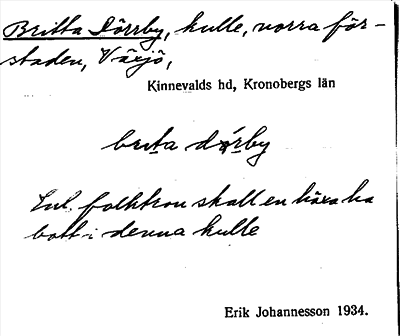 Britta Dörrby, kulle, norra för-
staden, Växjö,
Kinnevalds hd, Kronobergs län
brita
Enl. folktron skall en häxa ha
bott i denna kulle
Erik Johannesson 1934.